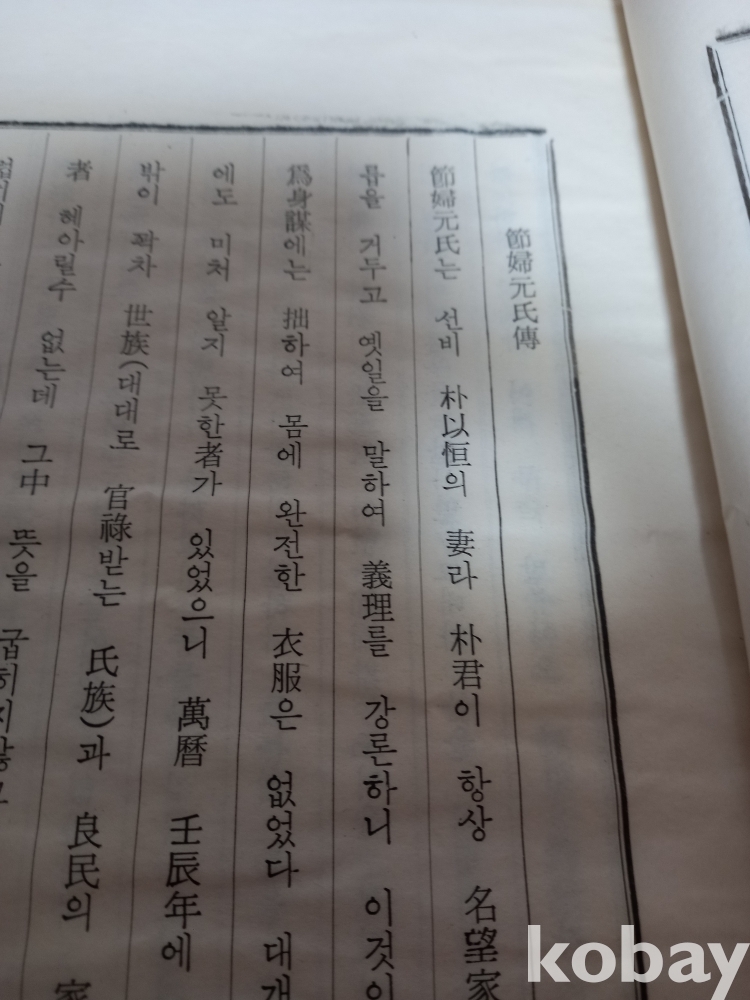 節婦元氏傳
節婦元氏는 선비 朴以恒의 妻라 朴君이 항상 名望家
릅을 거두고 옛일을 말하여 義理를 강론하니 이것이
爲身謀에는 拙하여 몸에 완전한 衣服은 없었다 대개
에도 미처 알지 못한者가 있었으니 萬曆 壬辰年에
밖이 꽉차 世族(대대로 官祿받는 氏族)과 良民의 家
者 헤아릴수 없는데 그中 뜻을 굽히지않고
kobay